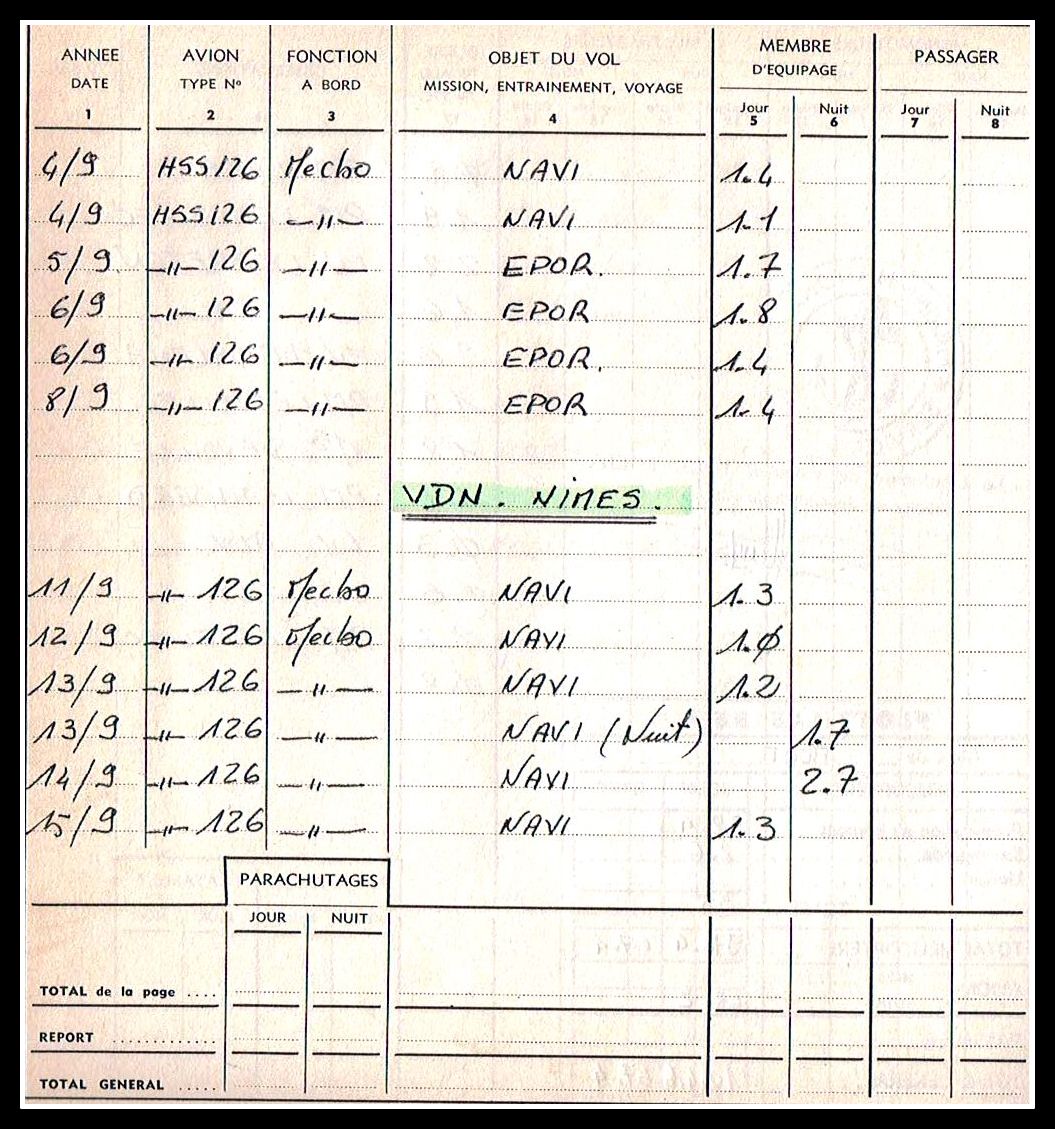 ANNEE AVION FONCTION OBJET DU VOL MEMBRE D'EQUIPAGE PASSAGER
DATE TYPE No A BORD MISSION, ENTRAINEMENT, VOYAGE Jour Nuit Jour Nuit
1 2 3 4 5 6 7 8
4/9 HSS126 Mecbo NAVI 1.4
4/9 HSS126 —"— NAVI 1.1
5/9 —"— 126 —"— EPOR. 1.7
6/9 —"— 126 —"— EPOR 1.8
6/9 —"— 126 —"— EPOR. 1.4
8/9 —"— 126 —"— EPOR 1.4
VDN. NIMES.
11/9 —"— 126 Mecbo NAVI 1.3
12/9 —"— 126 Mecbo NAVI 1.Ø
13/9 —"— 126 —"— NAVI 1.2
13/9 —"— 126 —"— NAVI (Nuit) 1.7
14/9 —"— 126 —"— NAVI 2.7
15/9 —"— 126 —"— NAVI 1.3
PARACHUTAGES
JOUR NUIT
TOTAL de la page ....
REPORT ............
TOTAL GENERAL .....